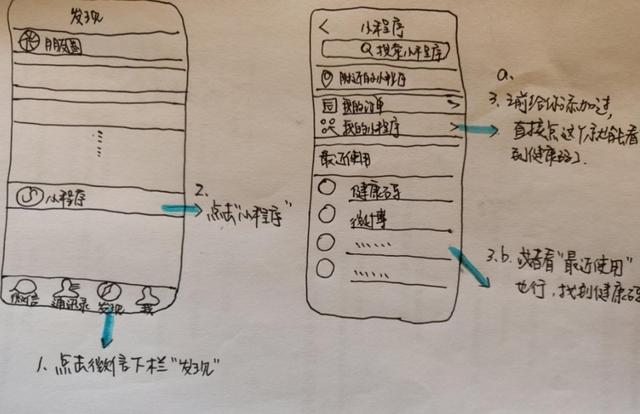 发现
朋友圈
小程序
微信 通讯录 发现 我
1. 点击微信下栏“发现”
2.
点击“小程序”
小程序
搜索小程序
附近的小程序
我的订单
我的小程序
最近使用
健康码
微计算
a.
3. 之前给你添加过,
直接点这个就能看
到健康码了.
3.b. 或者看“最近使用”
也行,找到健康码